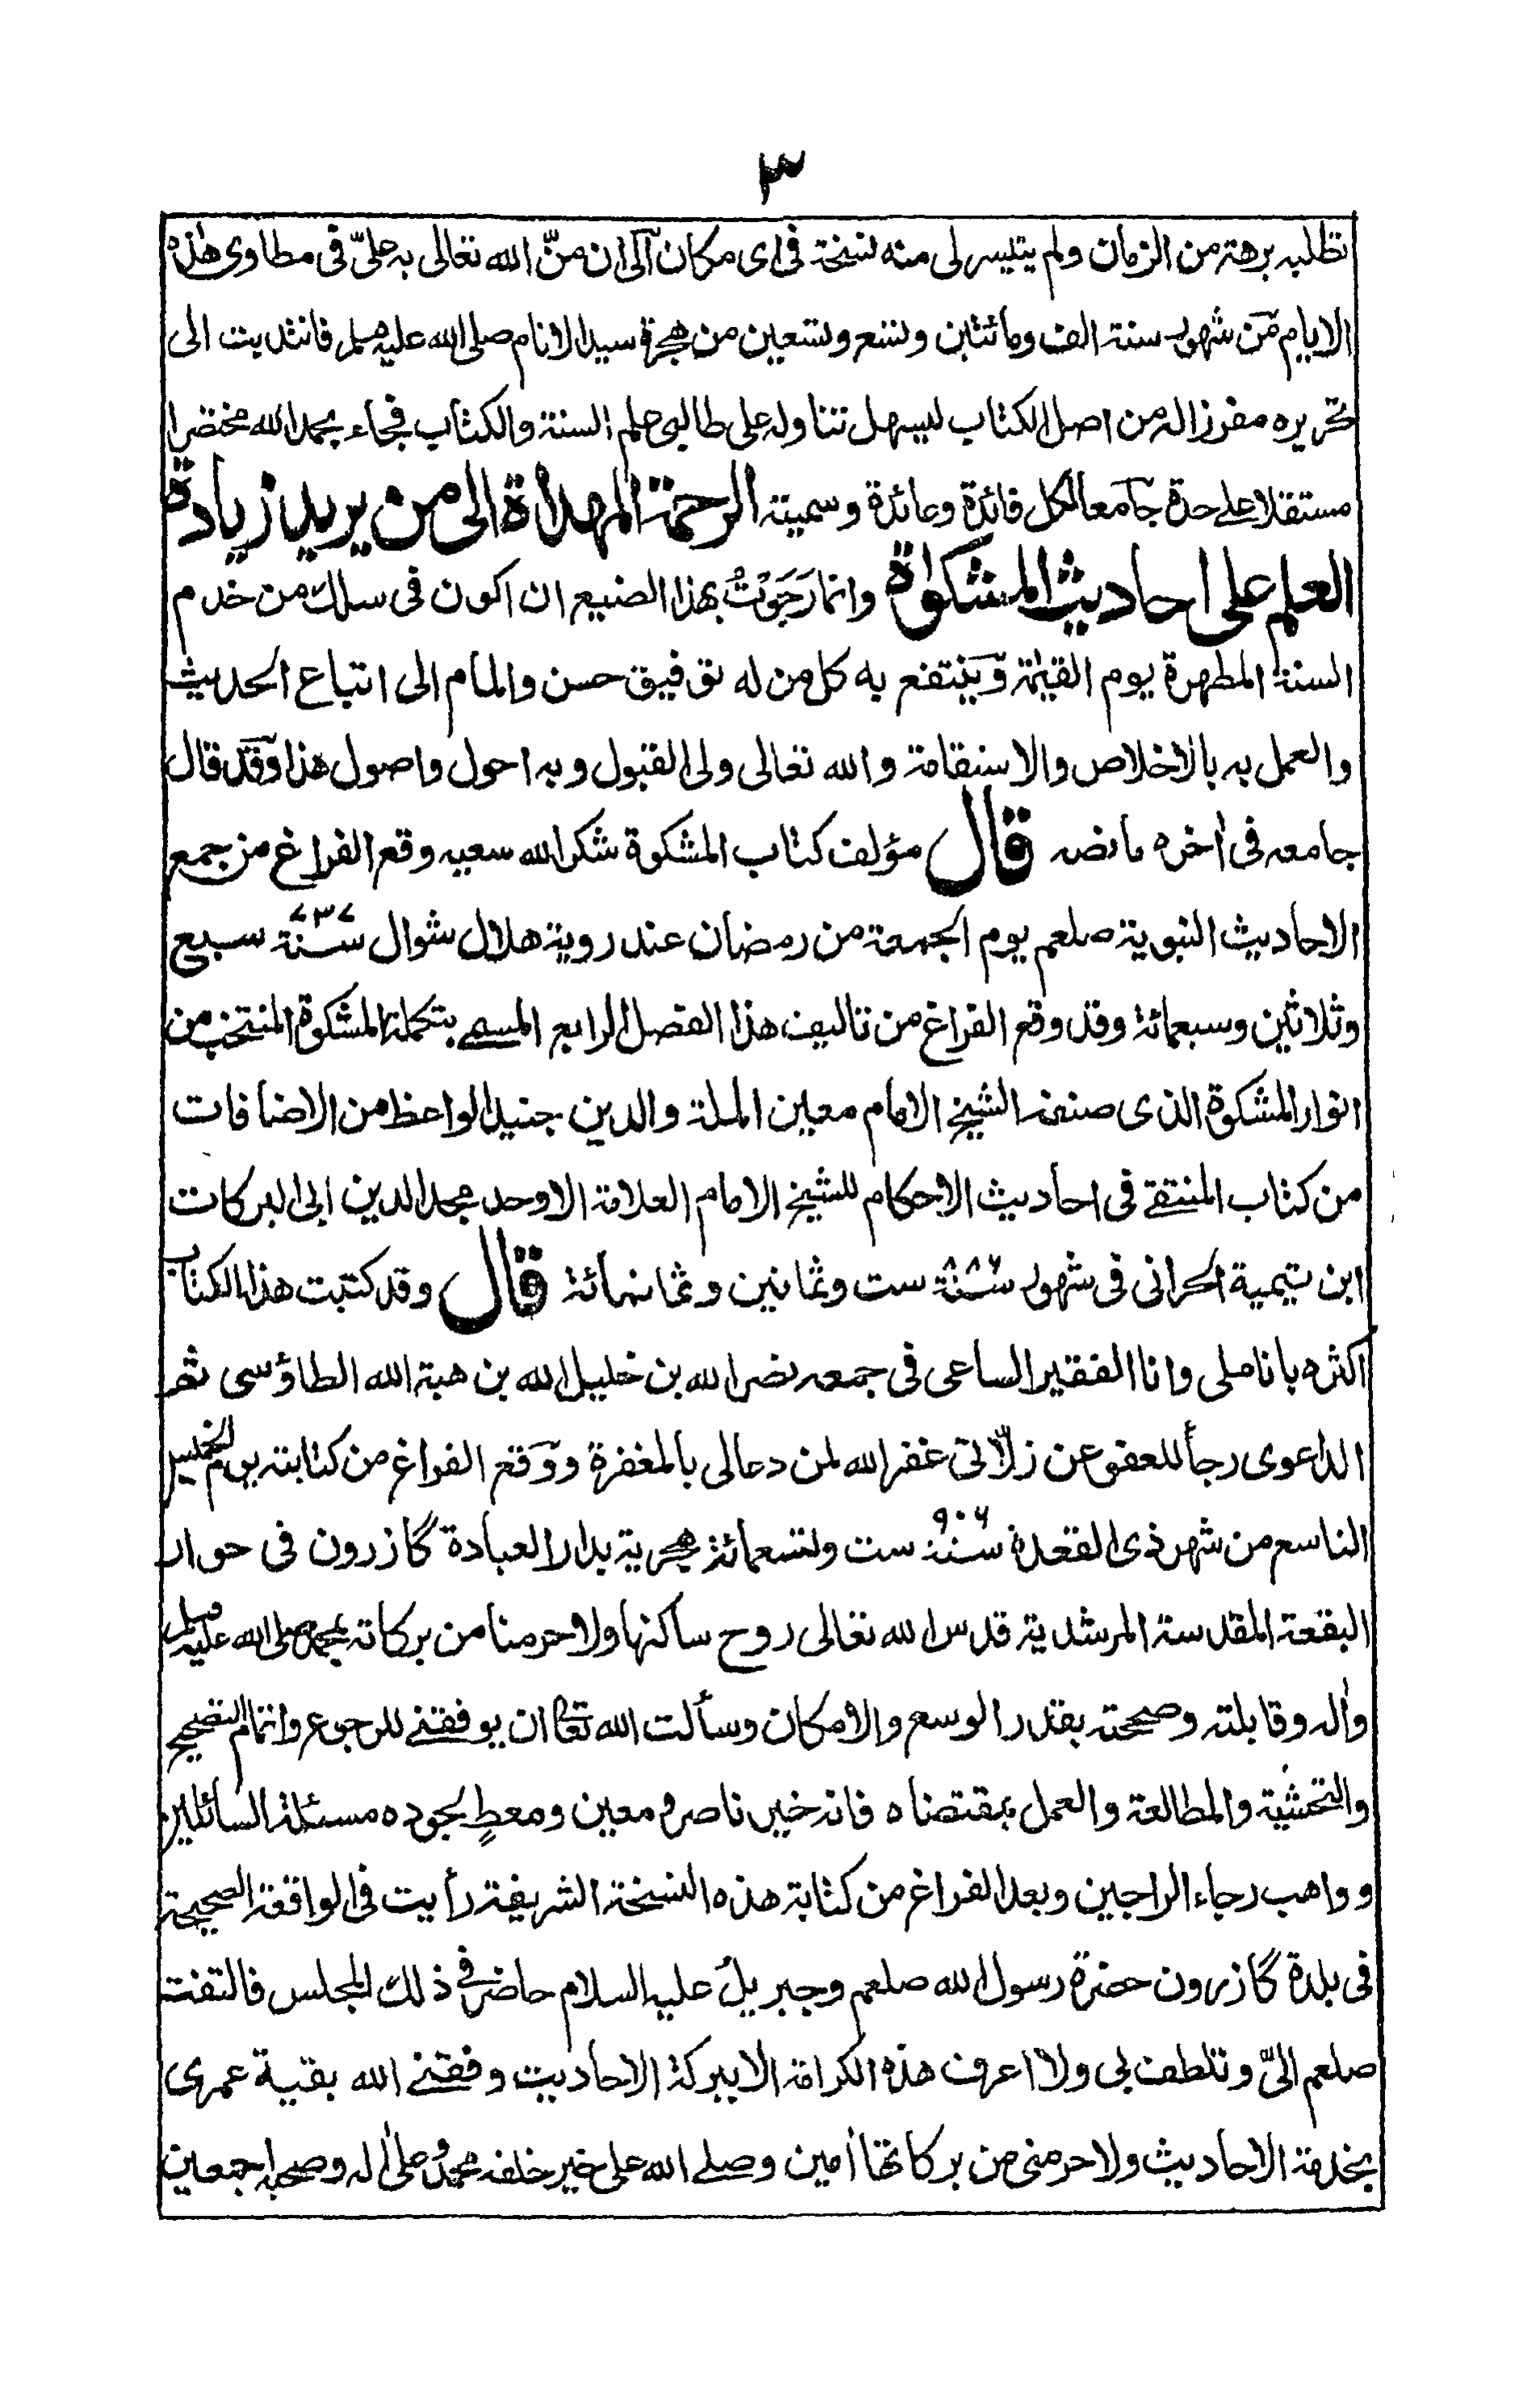 ٣
تطلبه برهة من الزمان ولم يتيسر لى منه نسخة فى اى مكان الى ان منّ الله تعالى به علىّ فى مطاوى هذه
الايام من شهور سنة الف ومائتين وتسع وتسعين من هجرة سيد الانام صلى الله عليه وسلم فانتدبت الى
تحريره مفرزا له من اصل الكتاب ليسهل تناوله على طالبى علم السنة والكتاب فجاء بحمد الله مختصرا
مستقلا على حدة جامعا لكل فائدة وعائدة وسميته الرحمة المهداة الى من يريد زيادة
العلم على احاديث المشكوٰة وانما رَجَوْتُ بهذا الصنيع ان اكون فى سلك من خدم
السنة المطهرة يوم القيٰمة وينتفع به كل من له توفيق حسن والمام الى اتباع الحديث
والعمل به بالاخلاص والاستقامة والله تعالى ولى القبول وبه احول واصول هذا وقد قال
جامعه فى اٰخره ما نصه قال مؤلف كتاب المشكوة شكر الله سعيه وقع الفراغ من جمع
الاحاديث النبوية صلعم يوم الجمعة من رمضان عند روية هلال شوال سنة ٧٣٧ سبع
وثلاثين وسبعمائة وقد وقع الفراغ من تاليف هذا الفصل الرابع المسمى بتكملة المشكوة المنتخب من
انوار المشكوة الذى صنفه الشيخ الامام معين الملة والدين جنيد الواعظ من الاضافات
من كتاب المنتقى فى احاديث الاحكام للشيخ الامام العلامة الاوحد مجد الدين ابى البركات
ابن تيمية الحرانى فى شهور سنة ٨٨٦ ست وثمانين وثمانمائة قال وقد كتبت هذا الكتاب
اكثره باناملى وانا الفقير الساعى فى جمعه نصر الله بن خليل الله بن هبة الله الطاؤسى ثم
الداعوى رجأ للعفو عن زلّاتى غفر الله لمن دعا لى بالمغفرة ووقع الفراغ من كتابته يوم الخميس
التاسع من شهر ذى القعدة سنة ٩٠٦ ست وتسعمائة هجرية بدار العبادة گازرون فى جوار
البقعة المقدسة المرشدية قدس الله تعالى روح ساكنها ولا حرمنا من بركاته بمحمد صلى الله عليه وسلم
واٰله وقابلته وصححته بقدر الوسع والامكان وسألت الله تعالى ان يوفقنى للرجوع واتمام التصحيح
والتحشية والمطالعة والعمل بمقتضاه فانه خير ناصر ومعين ومعطٍ بجوده مسئلة السائلين
وواهب رجاء الراجين وبعد الفراغ من كتابة هذه النسخة الشريفة رأيت فى الواقعة الصحيحة
فى بلدة گازرون حضرة رسول الله صلعم وجبريلُ عليه السلام حاضر فى ذلك المجلس فالتفت
صلعم الىّ وتلطف بى ولا اعرف هذه الكرامة الا ببركة الاحاديث وفقنى الله بقية عمرى
بخدمة الاحاديث ولا حرمنى من بركاتها اٰمين وصلى الله على خير خلقه محمد وعلى اٰله وصحبه اجمعين